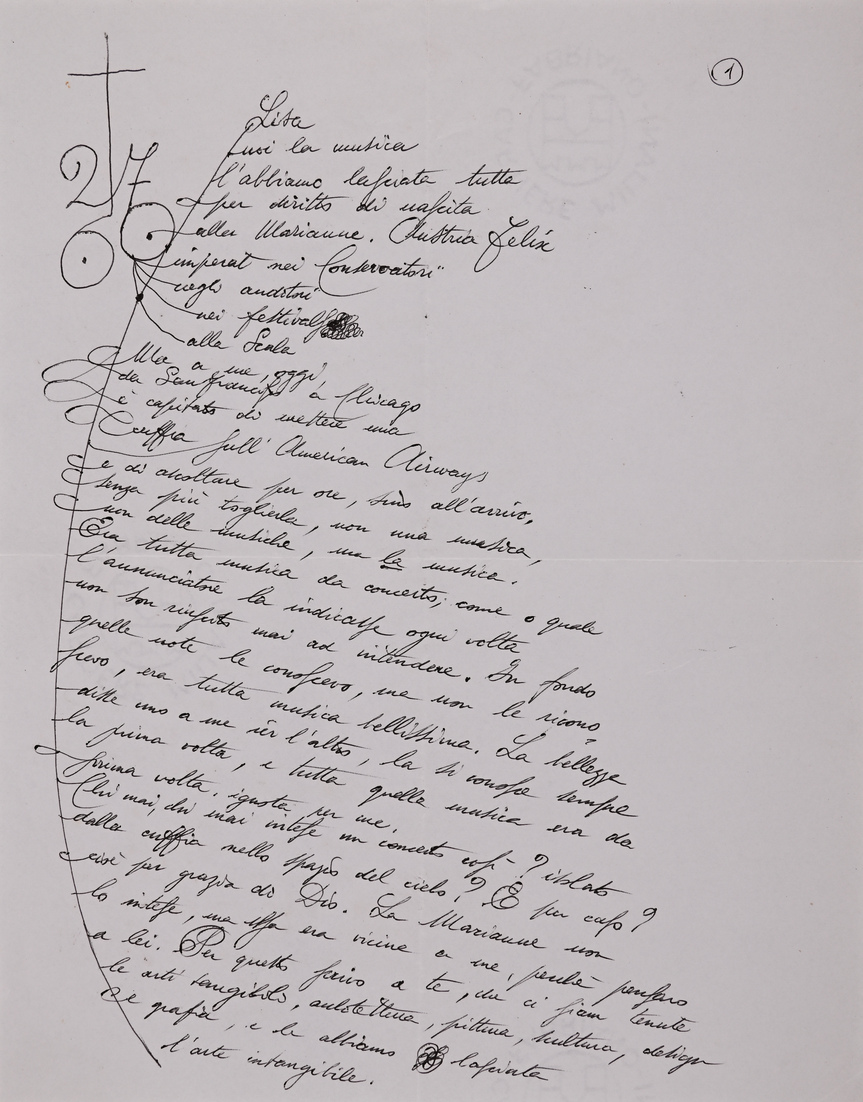 1
27
Lisa
noi la musica
l'abbiamo lasciata tutta
per diritto di nascita
alla Marianne. Austria Felix
imperat nei Conservatori
negli auditori
nei festivals
alla Scala
Ma a me, oggi,
da San Francisco a Chicago
è capitato di mettere una
Cuffia sull'American Airways
e di ascoltare per ore, sino all'arrivo,
senza più toglierla, non una musica,
non delle musiche, ma la musica.
Era tutta musica da concerto; come o quale
l'annunciatore la indicasse ogni volta
non son riuscito mai ad intendere. In fondo
quelle note le conoscevo, ma non le ricono
scevo, era tutta musica bellissima. La bellezza
disse uno a me ier l'altro, la si conosce sempre
la prima volta, e tutta quella musica era da
prima volta, ignota per me.
Chi mai, chi mai intese un concerto così? isolato
dalla cuffia nello spazio del cielo? È per caso?
cioè per grazia di Dio. La Marianne non
lo intese, ma essa era vicina a me, perché pensavo
a lei. Per questo scrivo a te, che ci siam tenute
le arti tangibili, architettura, pittura, scultura, design
e grafia, e le abbiamo lasciata
l'arte intangibile.